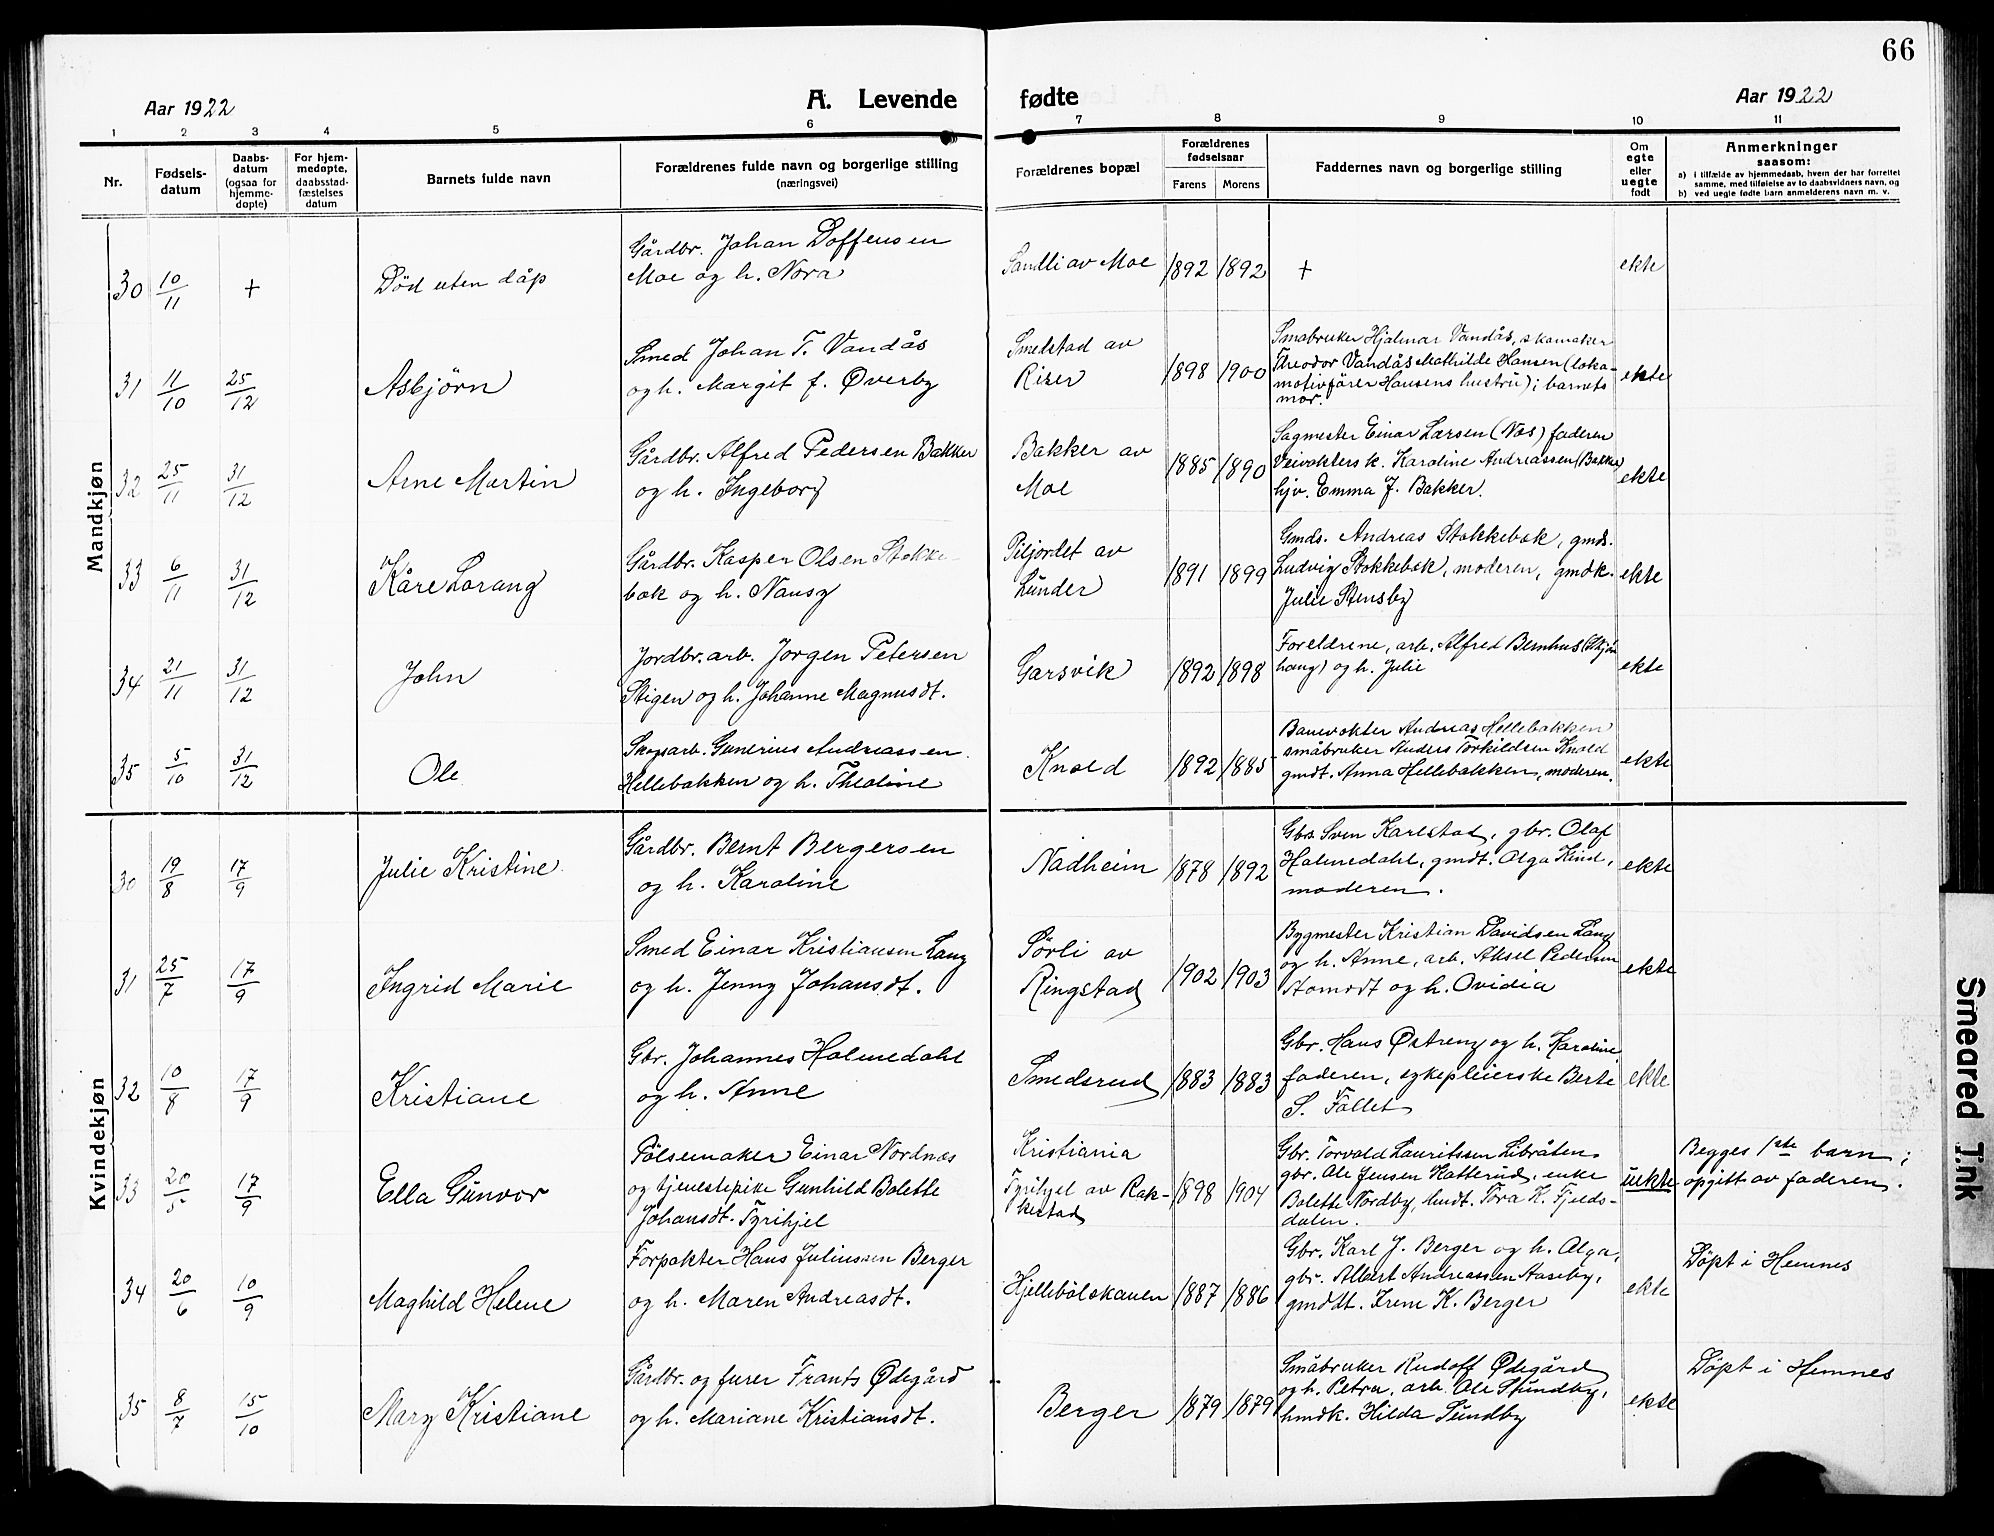 66
Aar 1922 A. Levende fødte Aar 1922
1 2 3 4 5 6 7 8 9 10 11
Nr.
Fødsels-
datum
Daabs-
datum
(ogsaa for
hjemme-
døpte)
For hjem-
medøpte,
daabsstad-
fæstelses
datum
Barnets fulde navn
Forældrenes fulde navn og borgerlige stilling
(næringsvei)
Forældrenes bopæl
Forældrenes
fødselsaar
Farens Morens
Faddernes navn og borgerlige stilling
Om
egte
eller
uegte
født
Anmerkninger
saasom:
a) i tilfælde av hjemmedaab, hvem der har forrettet
samme, med tilføielse av to daabsvidners navn, og
b) ved uegte fødte barn anmelderens navn m. v.
Mandkjøn
30 10/11 + Død uten dåp
Gårdbr. Johan Doffensen
Moe og h. Nora
Sandli av Moe 1892 1892 + ekte
31 11/10 25/12 Asbjørn
Smed Johan T. Vandås
og h. Margit f. Øverby
Smelstad av
Riser
1898 1900
Småbruker Hjalmar Vandås, skomaker
Theodor Vandås Mathilde Hansen (loko-
motivfører Hansens hustru); barnets
mor.
ekte
32 25/11 31/12 Arne Martin
Gårdbr. Alfred Pedersen Bakker
og h. Ingeborg
Bakker av
Moe
1885 1890
Sagmester Einar Larsen (Nes) faderen
Veivokters k. Karoline Andreassen (Bakke)
hjv. Emma J. Bakker.
ekte
33 6/11 31/12 Kåre Lorang
Gårdbr. Kasper Olsen Stokke-
bæk og h. Nansy
Piljordet av
Lunder
1891 1899
Gmds. Andreas Stokkebæk, gmds.
Ludvig Stokkebæk, moderen, gmdk.
Julie Stensby
ekte
34 21/11 31/12 John
Jordbr. arb. Jørgen Petersen
Stigen og h. Johanne Magnusdt.
Garsvik 1892 1898
Foreldrene, arb. Alfred Bernhus
haug) og h. Julie
ekte
35 5/10 31/12 Ole
Skogsarb. Gunerius Andreassen
Hellebakken og h. Theoline
Knold 1892 1885
Banevokter Andreas Hellebakken
småbruker Anders Torkildsen Knold
gmdt. Anna Hellebakken, moderen.
ekte
Kvindekjøn
30 19/8 17/9 Julie Kristine
Gårdbr. Bernt Bergersen
og h. Karoline
Nadheim 1878 1892
Gbr. Sven Karlstad, gbr. Olaf
Holmedahl, gmdt. Olga Kind,
moderen.
ekte
31 25/7 17/9 Ingrid Marie
Smed Einar Kristiansen Lang
og h. Jenny Johansdt.
Sørli av
Ringstad
1902 1903
Bygmester Kristian Davidsen Lang
og h. Anne, arb. Aksel Pedersen
og h. Ovidia
ekte
32 10/8 17/9 Kristiane
Gbr. Johannes Holmedahl
og h. Anne
Smedsrud 1883 1883
Gbr. Hans Østreng og h. Karoline
faderen, sykepleierske Berte
S. Fallet
ekte
33 20/5 17/9 Ella Gunvor
Pølsemaker Einar Nordnæs
og tjenestepike Gunhild Bolette
Johansdt. Fyrihjel
Kristiania
Fyrihjel av Rak-
kestad
1898 1904
Gbr. Torvald Lauritssen Libråten
gbr. Ole Jensen Katterud, enke
Bolette Nordby, hmdt. Tora K. Fjelds-
dalen.
uekte
Begges 1ste barn;
opgitt av faderen.
34 20/6 10/9 Maghild Helene
Forpakter Hans Juliussen Berger
og h. Maren Andreasdt.
Hjellebølskauen 1887 1886
Gbr. Karl J. Berger og h. Olga,
gbr. Albert Andreassen Aaseby,
gmddt. Irene K. Berger
ekte
Døpt i Hemnes
35 8/7 15/10 Mary Kristiane
Gårdbr. og furer Frants Ødegård
og h. Mariane Kristiansdt.
Berger 1879 1879
Småbruker Rudolf Ødegård
og h. Petra, arb. Ole Sundby,
hmdk. Hilda Sundby
ekte
Døpt i Hemnes
Smeared Ink